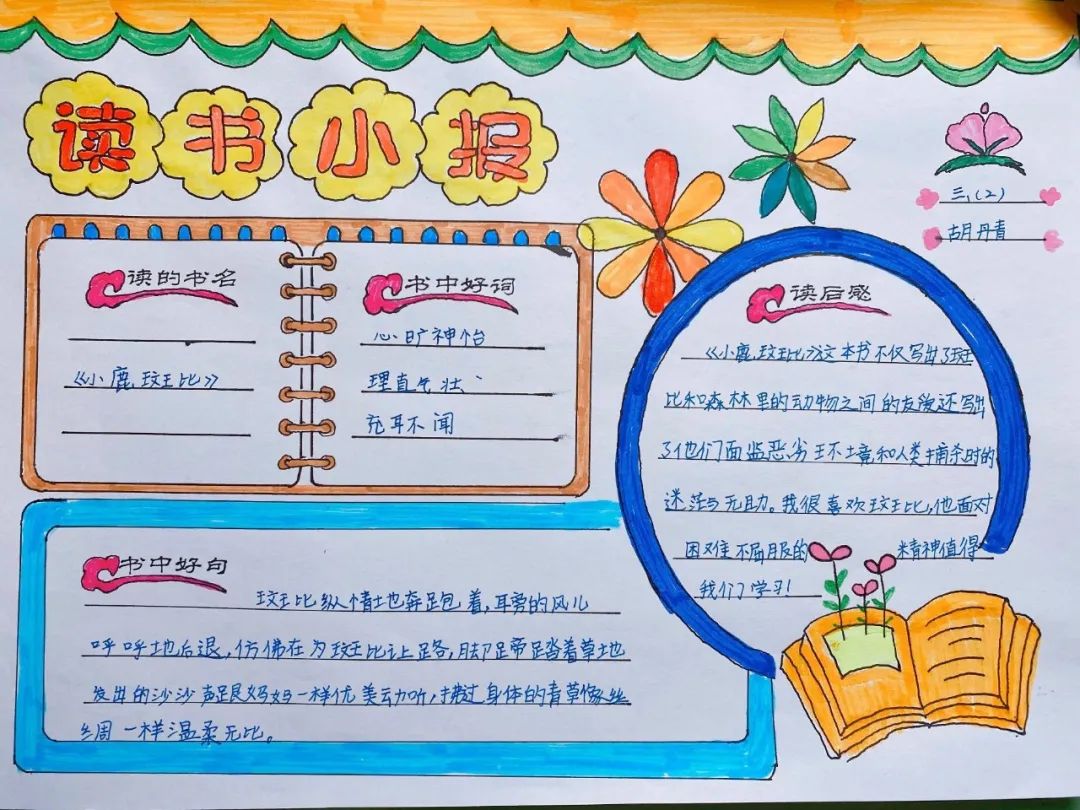 读书小报
三、(2)
胡丹青
读的书名
《小鹿斑比》
书中好词
心旷神怡
理直气壮
充耳不闻
读后感
《小鹿斑比》这本书不仅写出了斑
比和森林里的动物之间的友爱还写出
了他们面临恶劣环境和人类捕杀时的
迷茫与无助。我很喜欢斑比,他面对
困难不屈服的精神值得
我们学习!
书中好句
斑比纵情地奔跑着,耳旁的风儿
呼呼地后退,仿佛在为斑比让路,脚蹄踏着草地
发出的沙沙声跟妈妈一样优美动听,拂过身体的青草像丝
绸一样温柔无比。